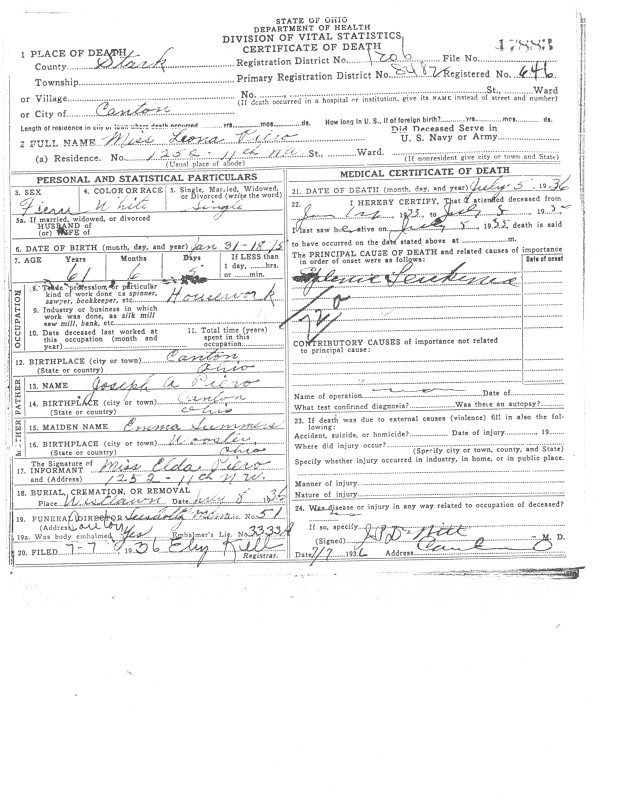 STATE OF OHIO
DEPARTMENT OF HEALTH
DIVISION OF VITAL STATISTICS
CERTIFICATE OF DEATH
1 PLACE OF DEATH
County Stark
Registration District No. 1206 File No.
Township
Primary Registration District No. 8482 Registered No. 646
or Village No. St., Ward
(If death occurred in a hospital or institution, give its NAME instead of street and number)
or City of Canton
Length of residence in city or town where death occurred yrs. mos. ds. How long in U. S., if of foreign birth? yrs. mos. ds.
2 FULL NAME Miss Leona Piero
Did Deceased Serve in U. S. Navy or Army
(a) Residence. No. 1252 - 11th NW St., Ward.
(Usual place of abode) (If nonresident give city or town and State)
PERSONAL AND STATISTICAL PARTICULARS
3. SEX
4. COLOR OR RACE
5. Single, Married, Widowed, or Divorced (write the word)
Fem White Single
5a. If married, widowed, or divorced
HUSBAND of
(or) WIFE of
6. DATE OF BIRTH (month, day, and year) Jan 31-1875
7. AGE Years Months Days If LESS than
1 day, hrs.
or min.
61 6 5
OCCUPATION
8. Trade, profession, or particular
kind of work done, as spinner,
sawyer, bookkeeper, etc. Housework
9. Industry or business in which
work was done, as silk mill
saw mill, bank, etc.
10. Date deceased last worked at
this occupation (month and
year)
11. Total time (years)
spent in this
occupation
12. BIRTHPLACE (city or town) Canton
(State or country) Ohio
FATHER
13. NAME Joseph A Piero
14. BIRTHPLACE (city or town) Canton
(State or country) Ohio
MOTHER
15. MAIDEN NAME Emma Summers
16. BIRTHPLACE (city or town) Wooster,
(State or country) Ohio
17. The Signature of
INFORMANT Miss Elda Piero
and (Address) 1252 - 11th N.W.
18. BURIAL, CREMATION, OR REMOVAL
Place Westlawn Date July 8 1936
19. FUNERAL DIRECTOR Lic. No. 51
(Address) Canton
19a. Was body embalmed Yes Embalmer's Lic. No. 3333A
20. FILED 7-7 1936
Registrar.
MEDICAL CERTIFICATE OF DEATH
21. DATE OF DEATH (month, day, and year) July 5. 1936
22. I HEREBY CERTIFY, That I attended deceased from
Jan 1st, 1935, to July 5, 19
I last saw her alive on July 5, 1935, death is said
to have occurred on the date stated above at m.
The PRINCIPAL CAUSE OF DEATH and related causes of importance
in order of onset were as follows: Date of onset
Splenic Leukemia
CONTRIBUTORY CAUSES of importance not related
to principal cause:
Name of operation Date of
What test confirmed diagnosis? Was there an autopsy?
23. If death was due to external causes (violence) fill in also the following:
Accident, suicide, or homicide? Date of injury 19
Where did injury occur?
(Specify city or town, county, and State)
Specify whether injury occurred in industry, in home, or in public place.
Manner of injury
Nature of injury
24. Was disease or injury in any way related to occupation of deceased?
If so, specify
(Signed) M. D.
Date 7/7 1936 Address Canton